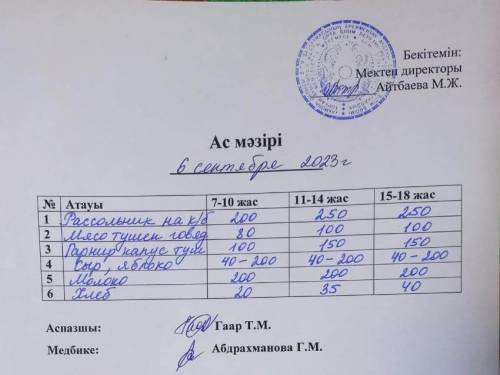 Бекітемін:
Мектеп директоры
Айтбаева М.Ж.
Ас мәзірі
6 сентября 2023 г
№ Атауы 7-10 жас 11-14 жас 15-18 жас
1 Рассольник на к/б 200 250 250
2 Мясо тушен говяд 80 100 100
3 Гарнир капус туш 100 150 150
4 Сыр, яблоко 40-200 40-200 40-200
5 Молоко 200 200 200
6 Хлеб 20 35 40
Аспазшы: Гаар Т.М.
Медбике: Абдрахманова Г.М.